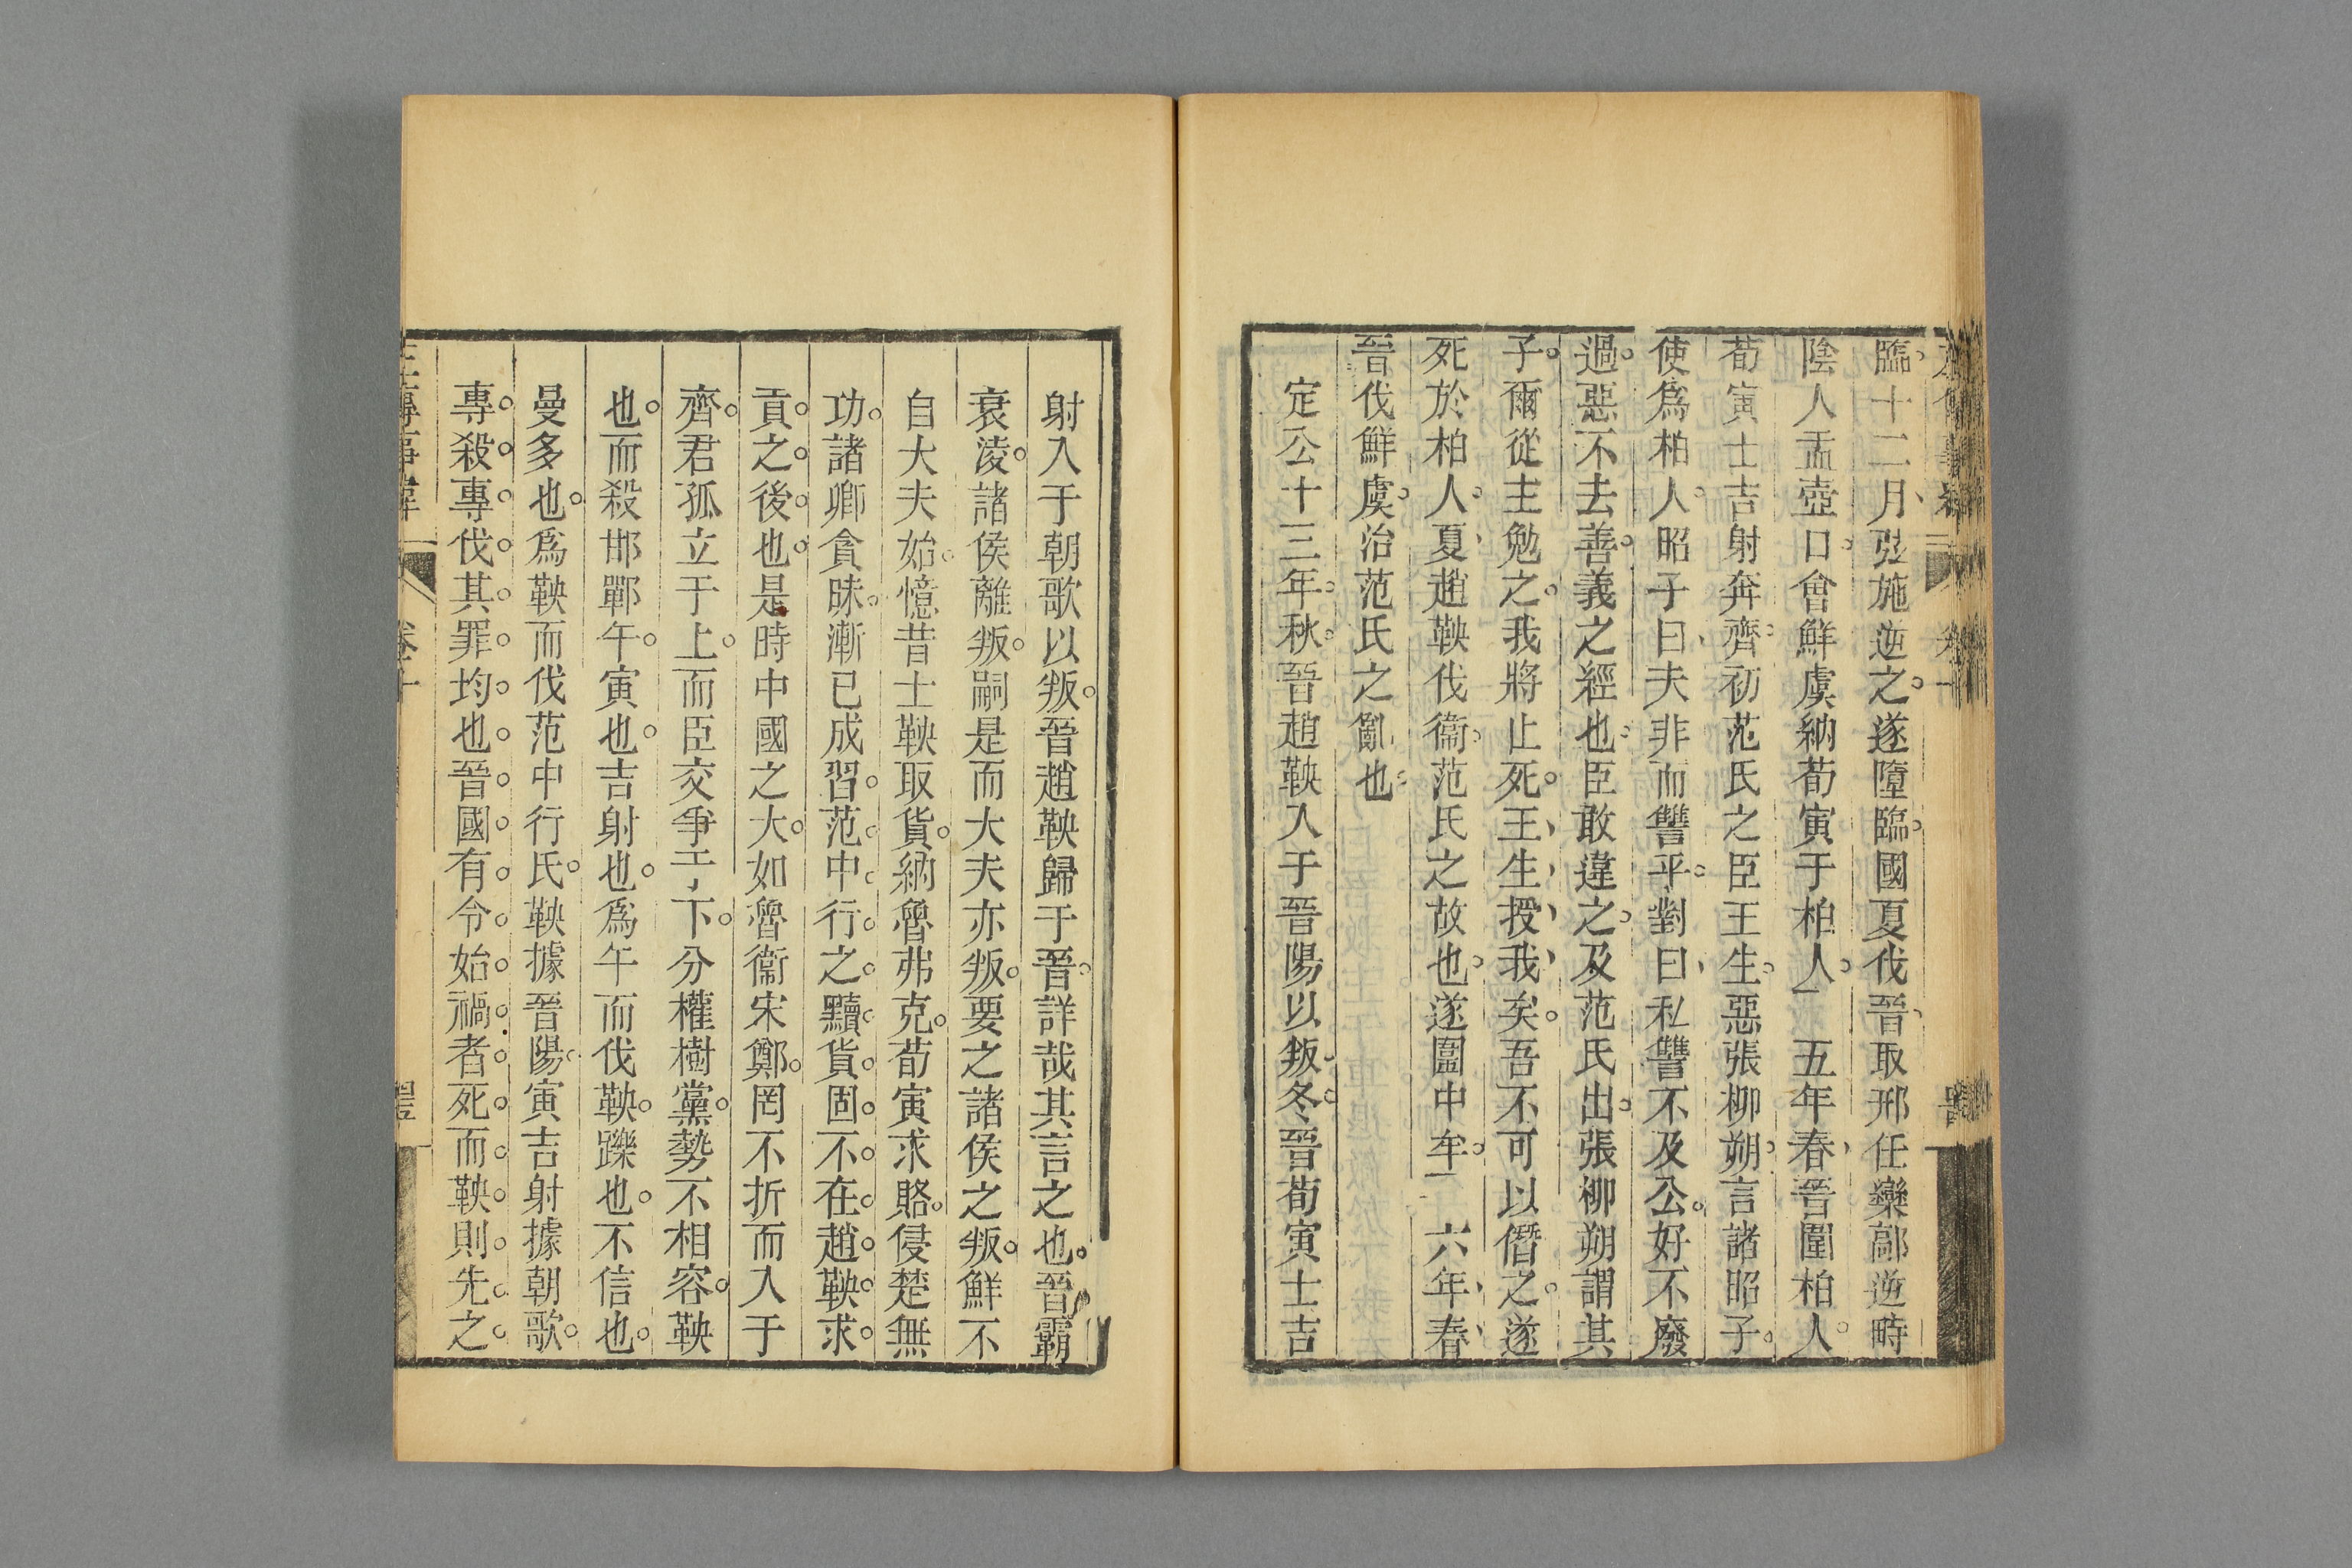 臨十二月弦施逆之遂墮臨國夏伐晉取邢任欒鄗逆畤
陰人盂壺口會鮮虞納荀寅于柏人 五年春晉圍柏人
荀寅士吉射奔齊初范氏之臣王生惡張柳朔言諸昭子
使爲柏人昭子曰夫非而讐乎對曰私讐不及公好不廢
過惡不去善義之經也臣敢違之及范氏出張柳朔謂其
子爾從主勉之我將止死王生授我矣吾不可以僭之遂
死於柏人夏趙鞅伐衞范氏之故也遂圍中牟 六年春
晉伐鮮虞治范氏之亂也
定公十三年秋晉趙鞅入于晉陽以叛冬晉荀寅士吉
射入于朝歌以叛晉趙鞅歸于晉詳哉其言之也晉霸
衰淩諸侯離叛嗣是而大夫亦叛要之諸侯之叛鮮不
自大夫始憶昔士鞅取貨納魯弗克荀寅求賂侵楚無
功諸卿貪昧漸已成習范中行之黷貨固不在趙鞅求
貢之後也是時中國之大如魯衞宋鄭罔不折而入于
齊君孤立于上而臣交爭于下分權樹黨勢不相容鞅
也而殺邯鄲午寅也吉射也爲午而伐鞅躒也不信也
曼多也爲鞅而伐范中行氏鞅據晉陽寅吉射據朝歌
專殺專伐其罪均也晉國有令始禍者死而鞅則先之
左傳事緯